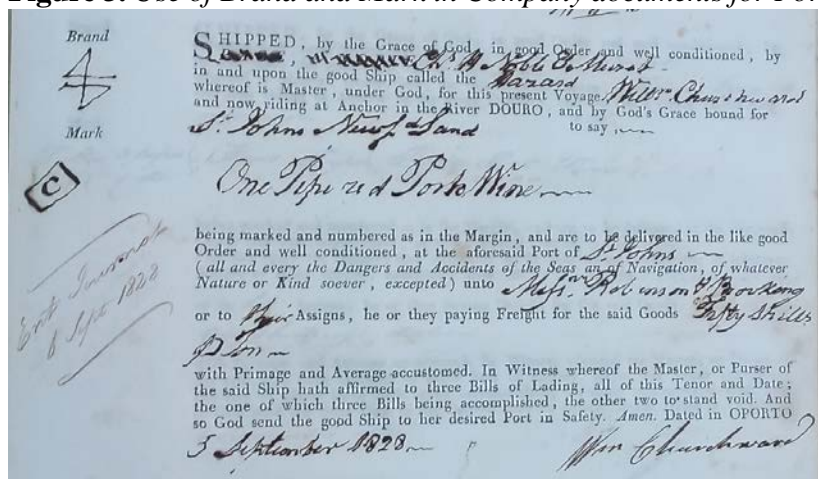 Figure 3. Use of Brand and Mark in Company documents for Por
Brand
Mark
C
Entd
6 Sept 1828
SHIPPED, by the Grace of God, in good Order and well conditioned, by
Chs H Noble & Murat
in and upon the good Ship called the Hazard
whereof is Master, under God, for this present Voyage Willm Churchward
and now riding at Anchor in the River DOURO, and by God's Grace bound for
St Johns Newfd Land to say
One Pipe red Port Wine
being marked and numbered as in the Margin, and are to be delivered in the like good
Order and well conditioned, at the aforesaid Port of St Johns
(all and every the Dangers and Accidents of the Seas an of Navigation, of whatever
Nature or Kind soever, excepted) unto Messrs Robinson & Brooking
or to their Assigns, he or they paying Freight for the said Goods Fifty Shills
P Ton
with Primage and Average accustomed. In Witness whereof the Master, or Purser of
the said Ship hath affirmed to three Bills of Lading, all of this Tenor and Date;
the one of which three Bills being accomplished, the other two to stand void. And
so God send the good Ship to her desired Port in Safety. Amen. Dated in OPORTO
5 September 1828
Wm Churchward